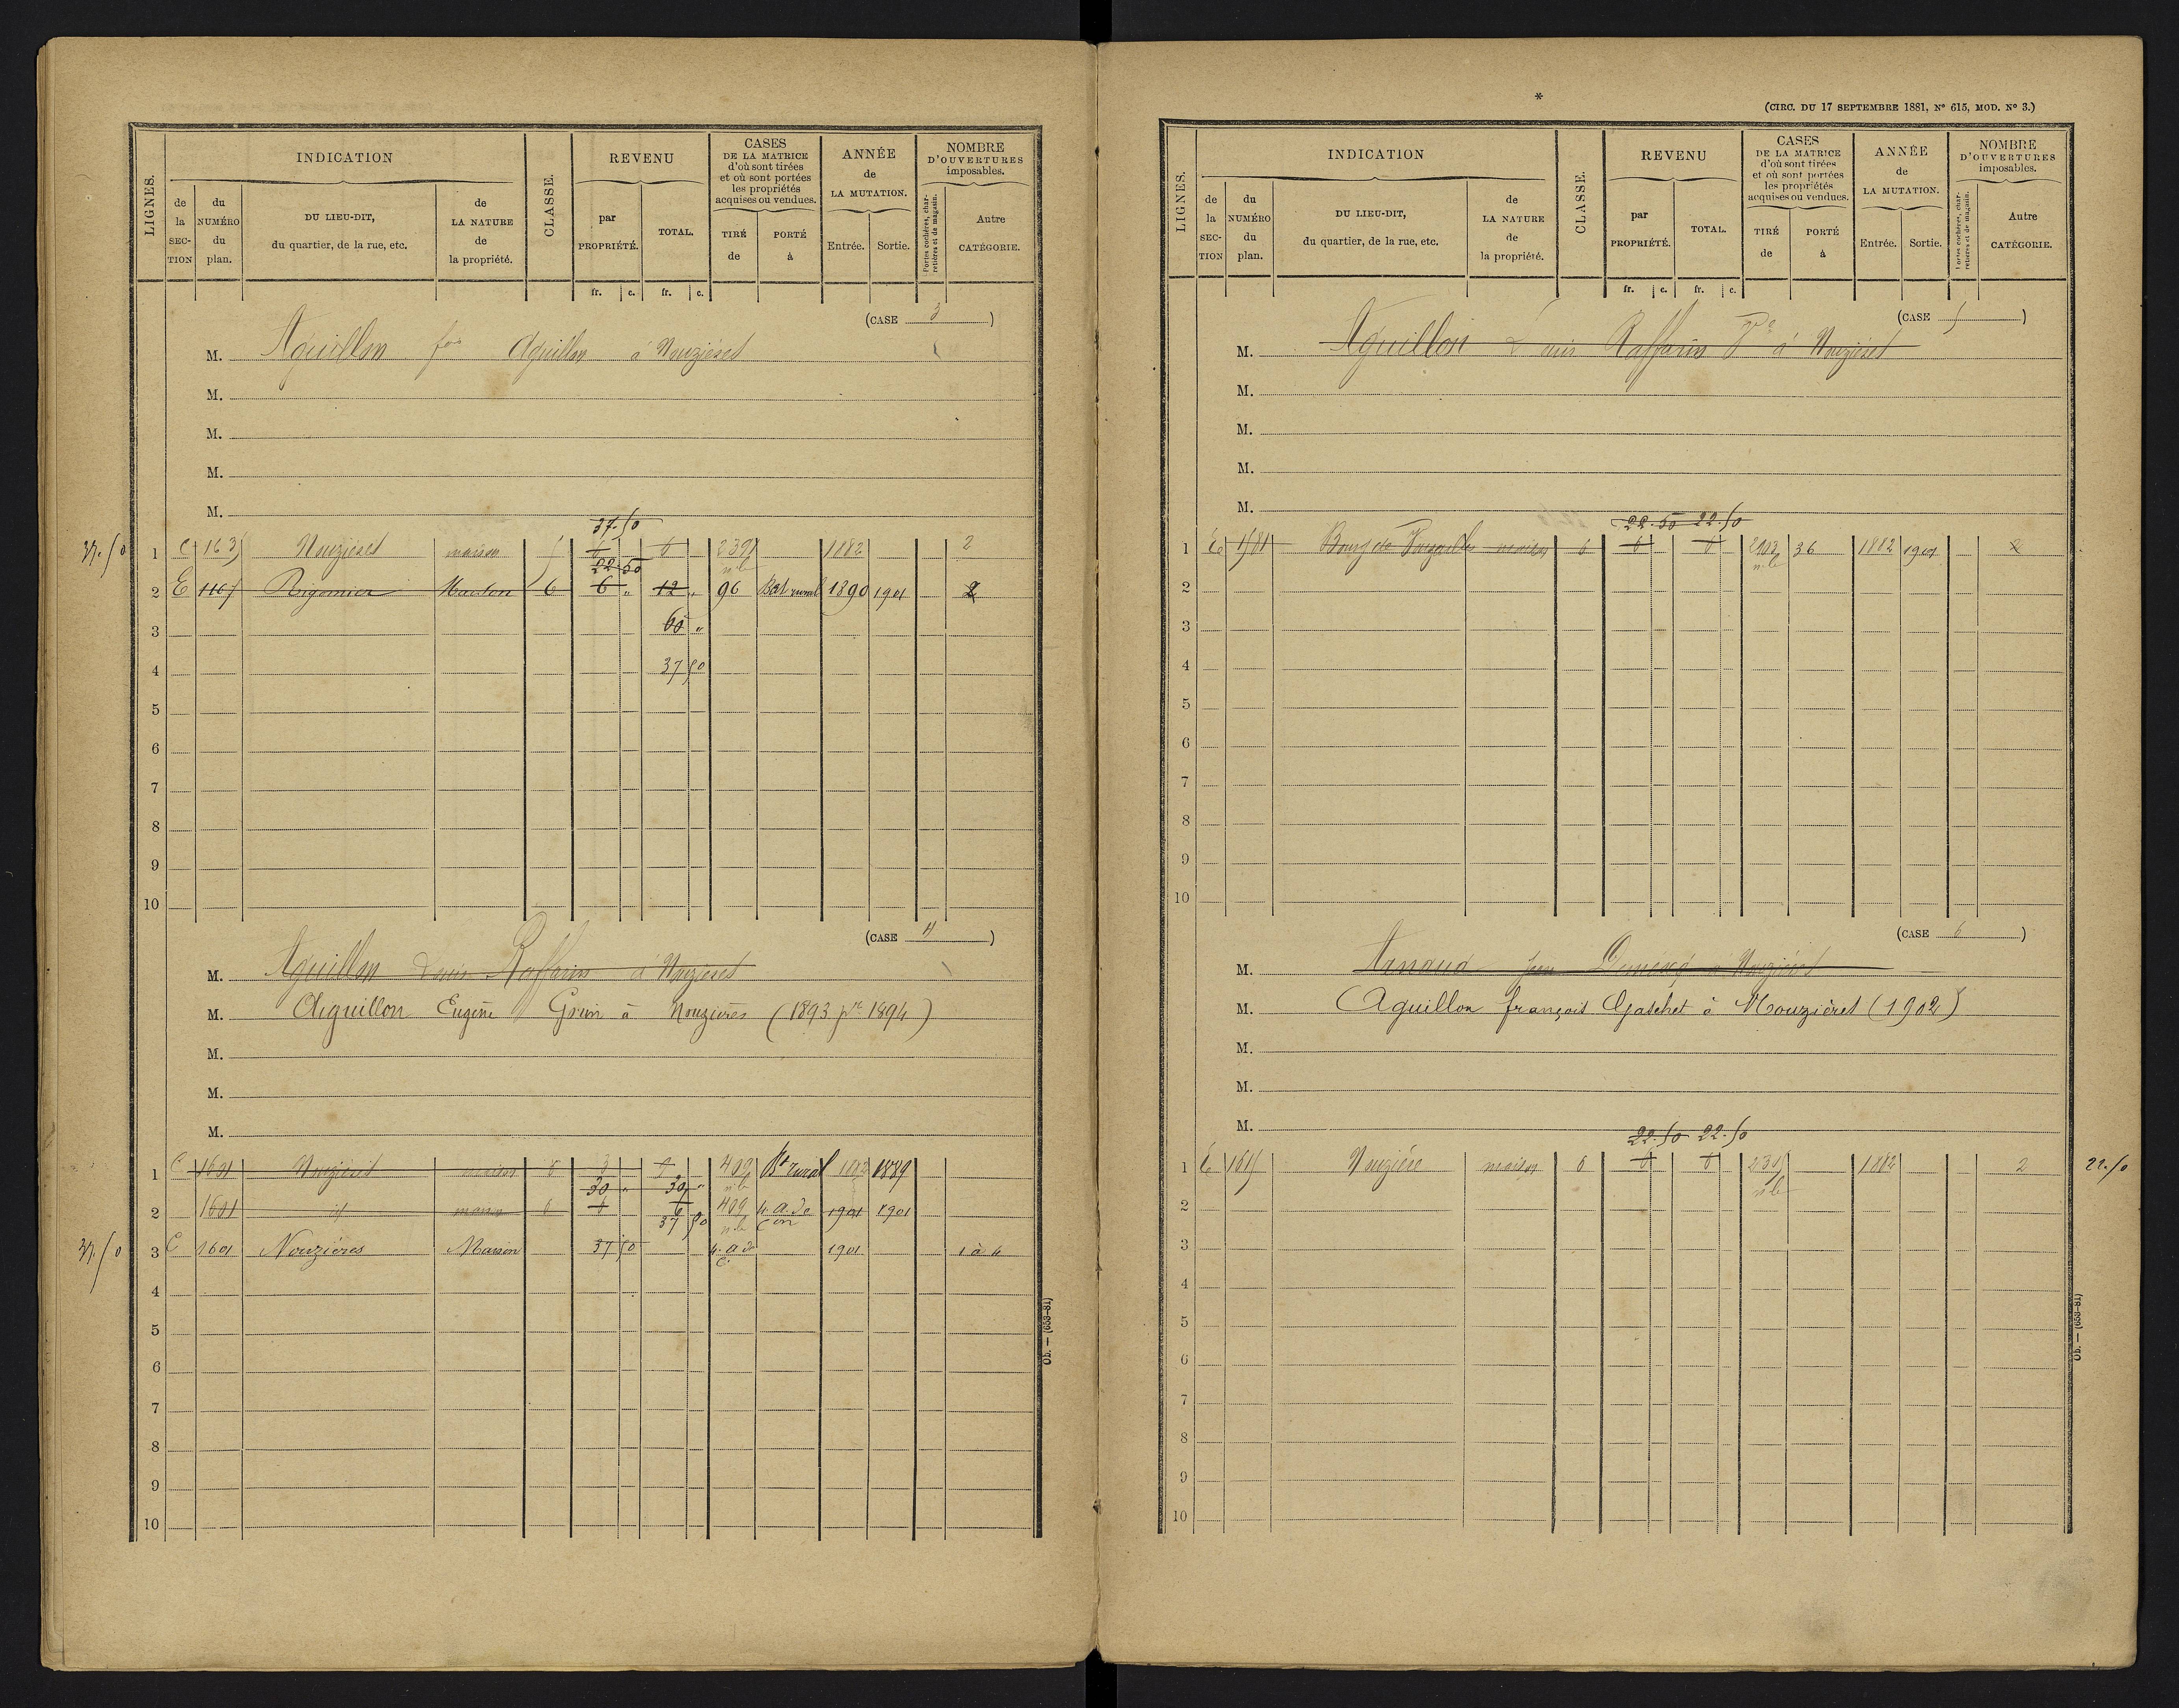 LIGNES.
INDICATION
de la SECTION
du NUMÉRO du plan.
DU LIEU-DIT, du quartier, de la rue, etc.
de LA NATURE de la propriété.
CLASSE.
REVENU
par PROPRIÉTÉ.
TOTAL.
CASES DE LA MATRICE d'où sont tirées et où sont portées les propriétés acquises ou vendues.
TIRÉ de
PORTÉ à
ANNÉE de LA MUTATION.
Entrée.
Sortie.
NOMBRE D'OUVERTURES imposables.
Portes cochères, charretières et de magasin.
Autre CATÉGORIE.
fr. c. fr. c.
(CASE 3)
M. Aguillon fois Aguillon à Nouzières
M.
M.
M.
M.
37.50
37.50 1 C 1635 Nouzieres maison 5 6 6 2395 1882 2
22 50 n.le
2 E 1105 Rigomier Maison 6 6 " 12 " 96 Bat rural 1890 1901 2
3 60 "
4 37 50
5
6
7
8
9
10
(CASE 4)
M. Aguillon Louis Raffarin à Nouzieres
M. Aiguillon Eugène Grim à Nouzières (1893 pr 1894)
M.
M.
M.
1 C 1601 Nouzieres maison 8 3 9 409 Bt rural 1882 1889
30 " 30 " n.le
2 1601 id maison 6 6 6 409 4. a. de con 1901 1901
37 50 n.le
37.50 3 C 1601 Nouzières Maison 37 50 4. a de c. 1901 1 à 4
4
5
6
7
8
9
10
Ob. — (653-81)
*
(CIRC. DU 17 SEPTEMBRE 1881, N° 615, MOD. N° 3.)
LIGNES.
INDICATION
de la SECTION
du NUMÉRO du plan.
DU LIEU-DIT, du quartier, de la rue, etc.
de LA NATURE de la propriété.
CLASSE.
REVENU
par PROPRIÉTÉ.
TOTAL.
CASES DE LA MATRICE d'où sont tirées et où sont portées les propriétés acquises ou vendues.
TIRÉ de
PORTÉ à
ANNÉE de LA MUTATION.
Entrée.
Sortie.
NOMBRE D'OUVERTURES imposables.
Portes cochères, charretières et de magasin.
Autre CATÉGORIE.
fr. c. fr. c.
(CASE 5)
M. Aguillon Louis Raffarin à Nouzières
M.
M.
M.
M.
22.50 22.50
1 E 1581 Bourg de maison 6 6 6 2103 36 1882 1901 2
n.le
2
3
4
5
6
7
8
9
10
(CASE 6)
M. Arnaud Jean à Nouzières
M. Aguillon françois Gaschet à Nouzières (1902)
M.
M.
M.
22.50 22.50
1 C 1615 Nouzière maison 6 6 6 2315 1882 2 22.50
n.le
2
3
4
5
6
7
8
9
10
Ob. — (653-81)